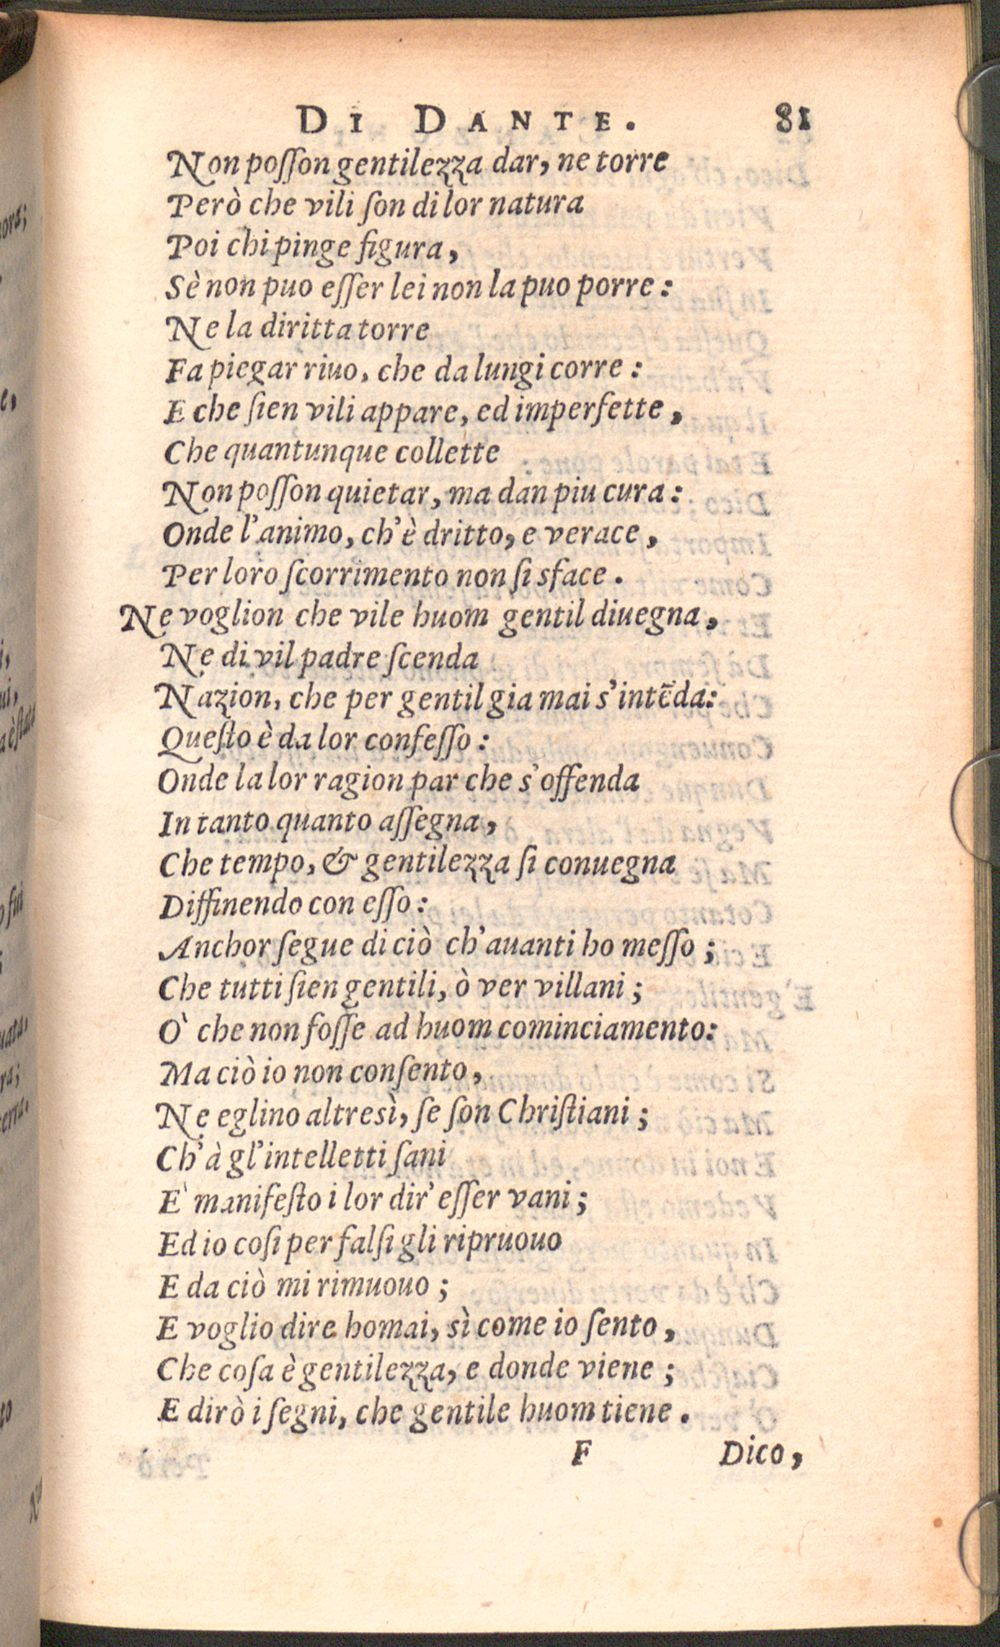 DI DANTE. 81
Non posſon gentilezza dar, ne torre
Però che vili ſon di lor natura
Poi chi pinge figura,
Sè non puo eſſer lei non la puo porre:
Ne la diritta torre
Fa piegar riuo, che da lungi corre:
E che ſien vili appare, ed imperfette,
Che quantunque collette
Non poſſon quietar, ma dan piu cura:
Onde l'animo, ch'è dritto, e verace,
Per loro ſcorrimento non ſi sface.
Ne voglion che vile huom gentil diuegna,
Ne di vil padre ſcenda
Nazion, che per gentil gia mai s'intēda:
Queſto è da lor confeſſo:
Onde la lor ragion par che s'offenda
In tanto quanto aſſegna,
Che tempo, & gentilezza ſi conuegna
Diffinendo con eſſo:
Anchor ſegue di ciò ch'auanti ho meſſo;
Che tutti ſien gentili, ò ver villani;
Ò che non foſſe ad huom cominciamento:
Ma ciò io non conſento,
Ne eglino altresì, ſe ſon Chriſtiani;
Ch'à gl'intelletti ſani
E' manifeſto i lor dir' eſſer vani;
Ed io coſi per falſi gli ripruouo
E da ciò mi rimuouo;
E voglio dire homai, sì come io ſento,
Che coſa è gentilezza, e donde viene;
E dirò i ſegni, che gentile huom tiene.
F Dico,